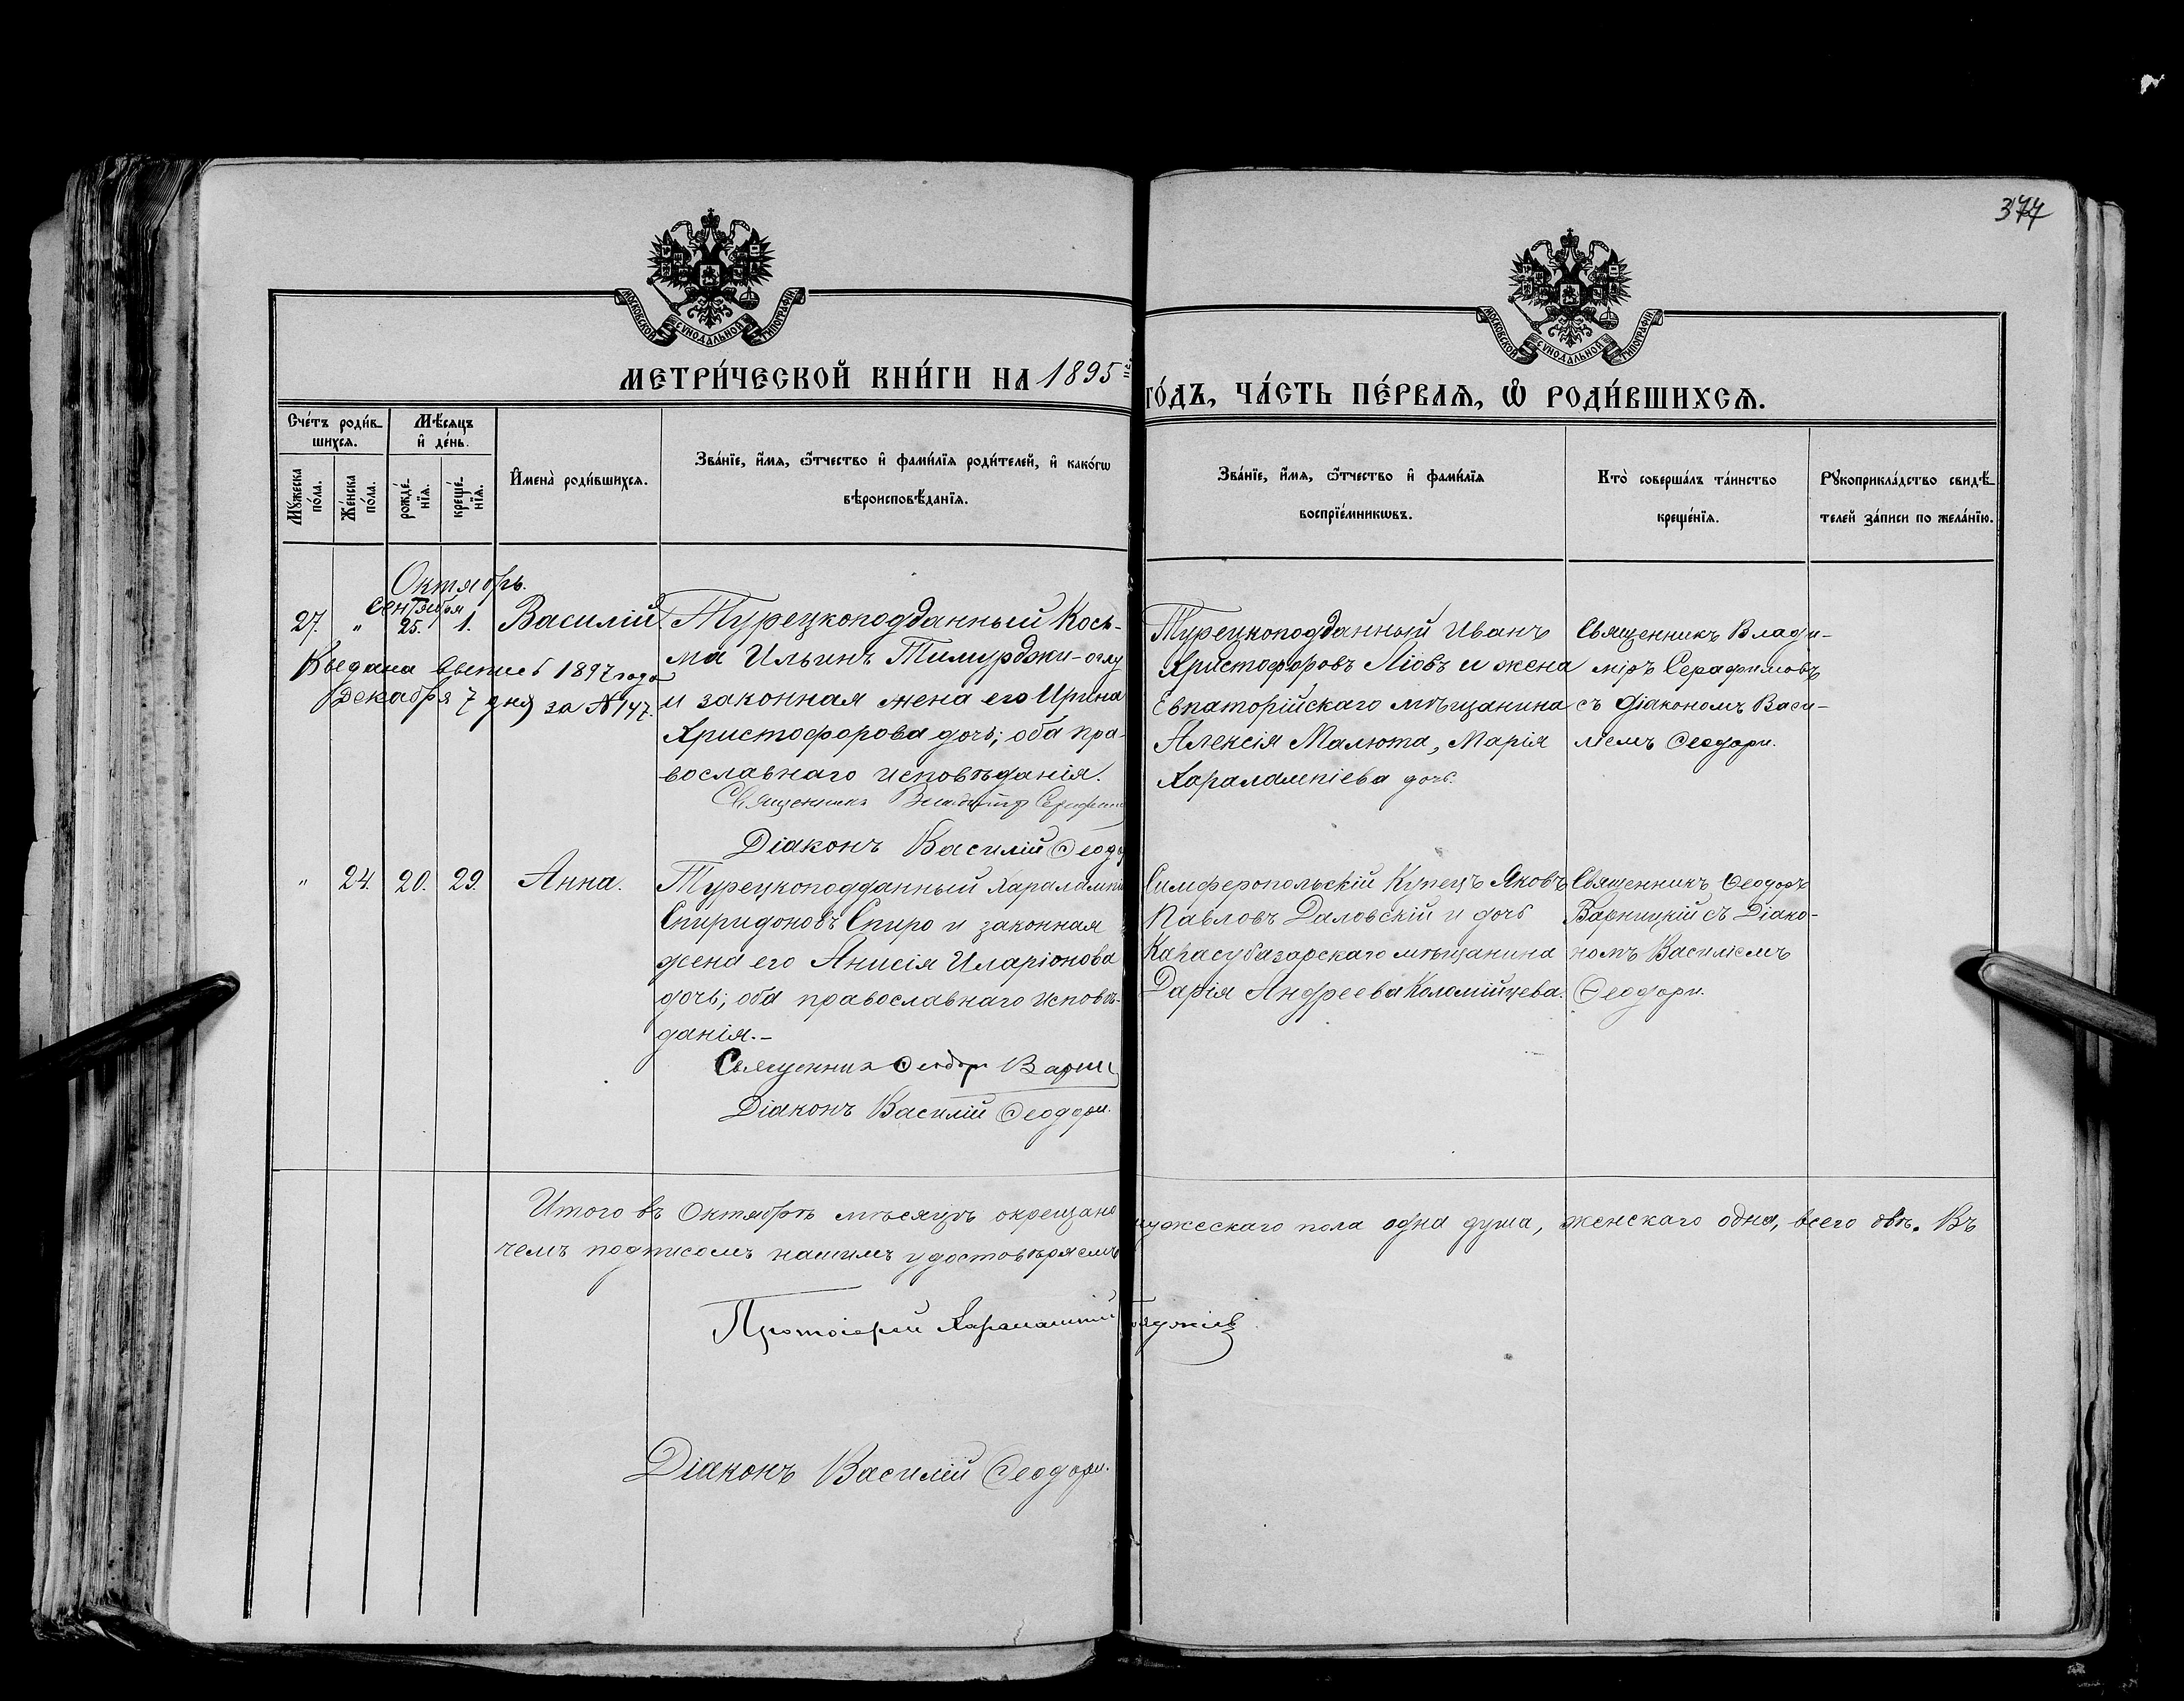 377
МОСКОВСКОЙ СѴНОДАЛЬНОЙ ТИПОГРАФІИ
МОСКОВСКОЙ СѴНОДАЛЬНОЙ ТИПОГРАФІИ
МЕТРИ́ЧЕСКОЙ КНИ́ГИ НА 1895й ГО́ДЪ, ЧА́СТЬ ПЕ́РВАѦ, Ѡ҆ РОДИ́ВШИХСѦ.
Сче́тъ роди́вшихсѧ.
Мѣ́сѧцъ и҆ де́нь.
Мꙋ́жеска по́ла.
Же́нска по́ла.
рожде́нїѧ.
креще́нїѧ.
И҆мена̀ роди́вшихсѧ.
Зва́нїе, и҆́мѧ, ѻ҆́тчество и҆ фами́лїѧ роди́телей, и҆ како́гѡ
вѣроисповѣ́данїѧ.
Зва́нїе, и҆́мѧ, ѻ҆́тчество и҆ фами́лїѧ
воспрїе́мникѡвъ.
Кто̀ соверша́лъ та́инство
креще́нїѧ.
Рꙋкоприкла́дство свидѣ́-
телей за́писи по жела́нїю.
Октябрь.
Сентября
27. " 25. 1. Василій.
Выдана выпись 1897 года
Декабря 7 дня за № 147.
Турецкоподданный Кось-
ма Ильинъ Тимурджи-оглу
и законная жена его Ирина
Христофорова дочь; оба пра-
вославнаго исповѣданія.
Священникъ Владиміръ Серафимо
Діаконъ Василій Ѳеодо
Турецкоподданный Иванъ
Христофоровъ Ліовъ и жена
Евпаторійскаго мѣщанина
Алексія Малюта, Марія
Харалампіева дочь.
Священникъ Влади-
міръ Серафимовъ
съ Діакономъ Васи-
ліемъ Ѳеодори.
" 24. 20. 29. Анна.
Турецкоподданный Харалампій
Спиридоновъ Спиро и законная
жена его Анисія Иларіонова
дочь; оба православнаго исповѣ-
данія.-
Священникъ Ѳеодоръ Варниц
Діаконъ Василій Ѳеодори.
Симферопольскій Купецъ Яковъ
Павловъ Даловскій и дочь
Карасубазарскаго мѣщанина
Дарія Андреева Коломійцева.
Священникъ Ѳеодоръ
Варницкій съ Діако-
номъ Василіемъ
Ѳеодори.
Итого въ Октябрѣ мѣсяцѣ окрещено мужескаго пола одна душа, женскаго одна, всего двѣ. Въ
чемъ подписомъ нашимъ удостовѣряемъ
Протоіерей Харалампій
Діаконъ Василій Ѳеодори.